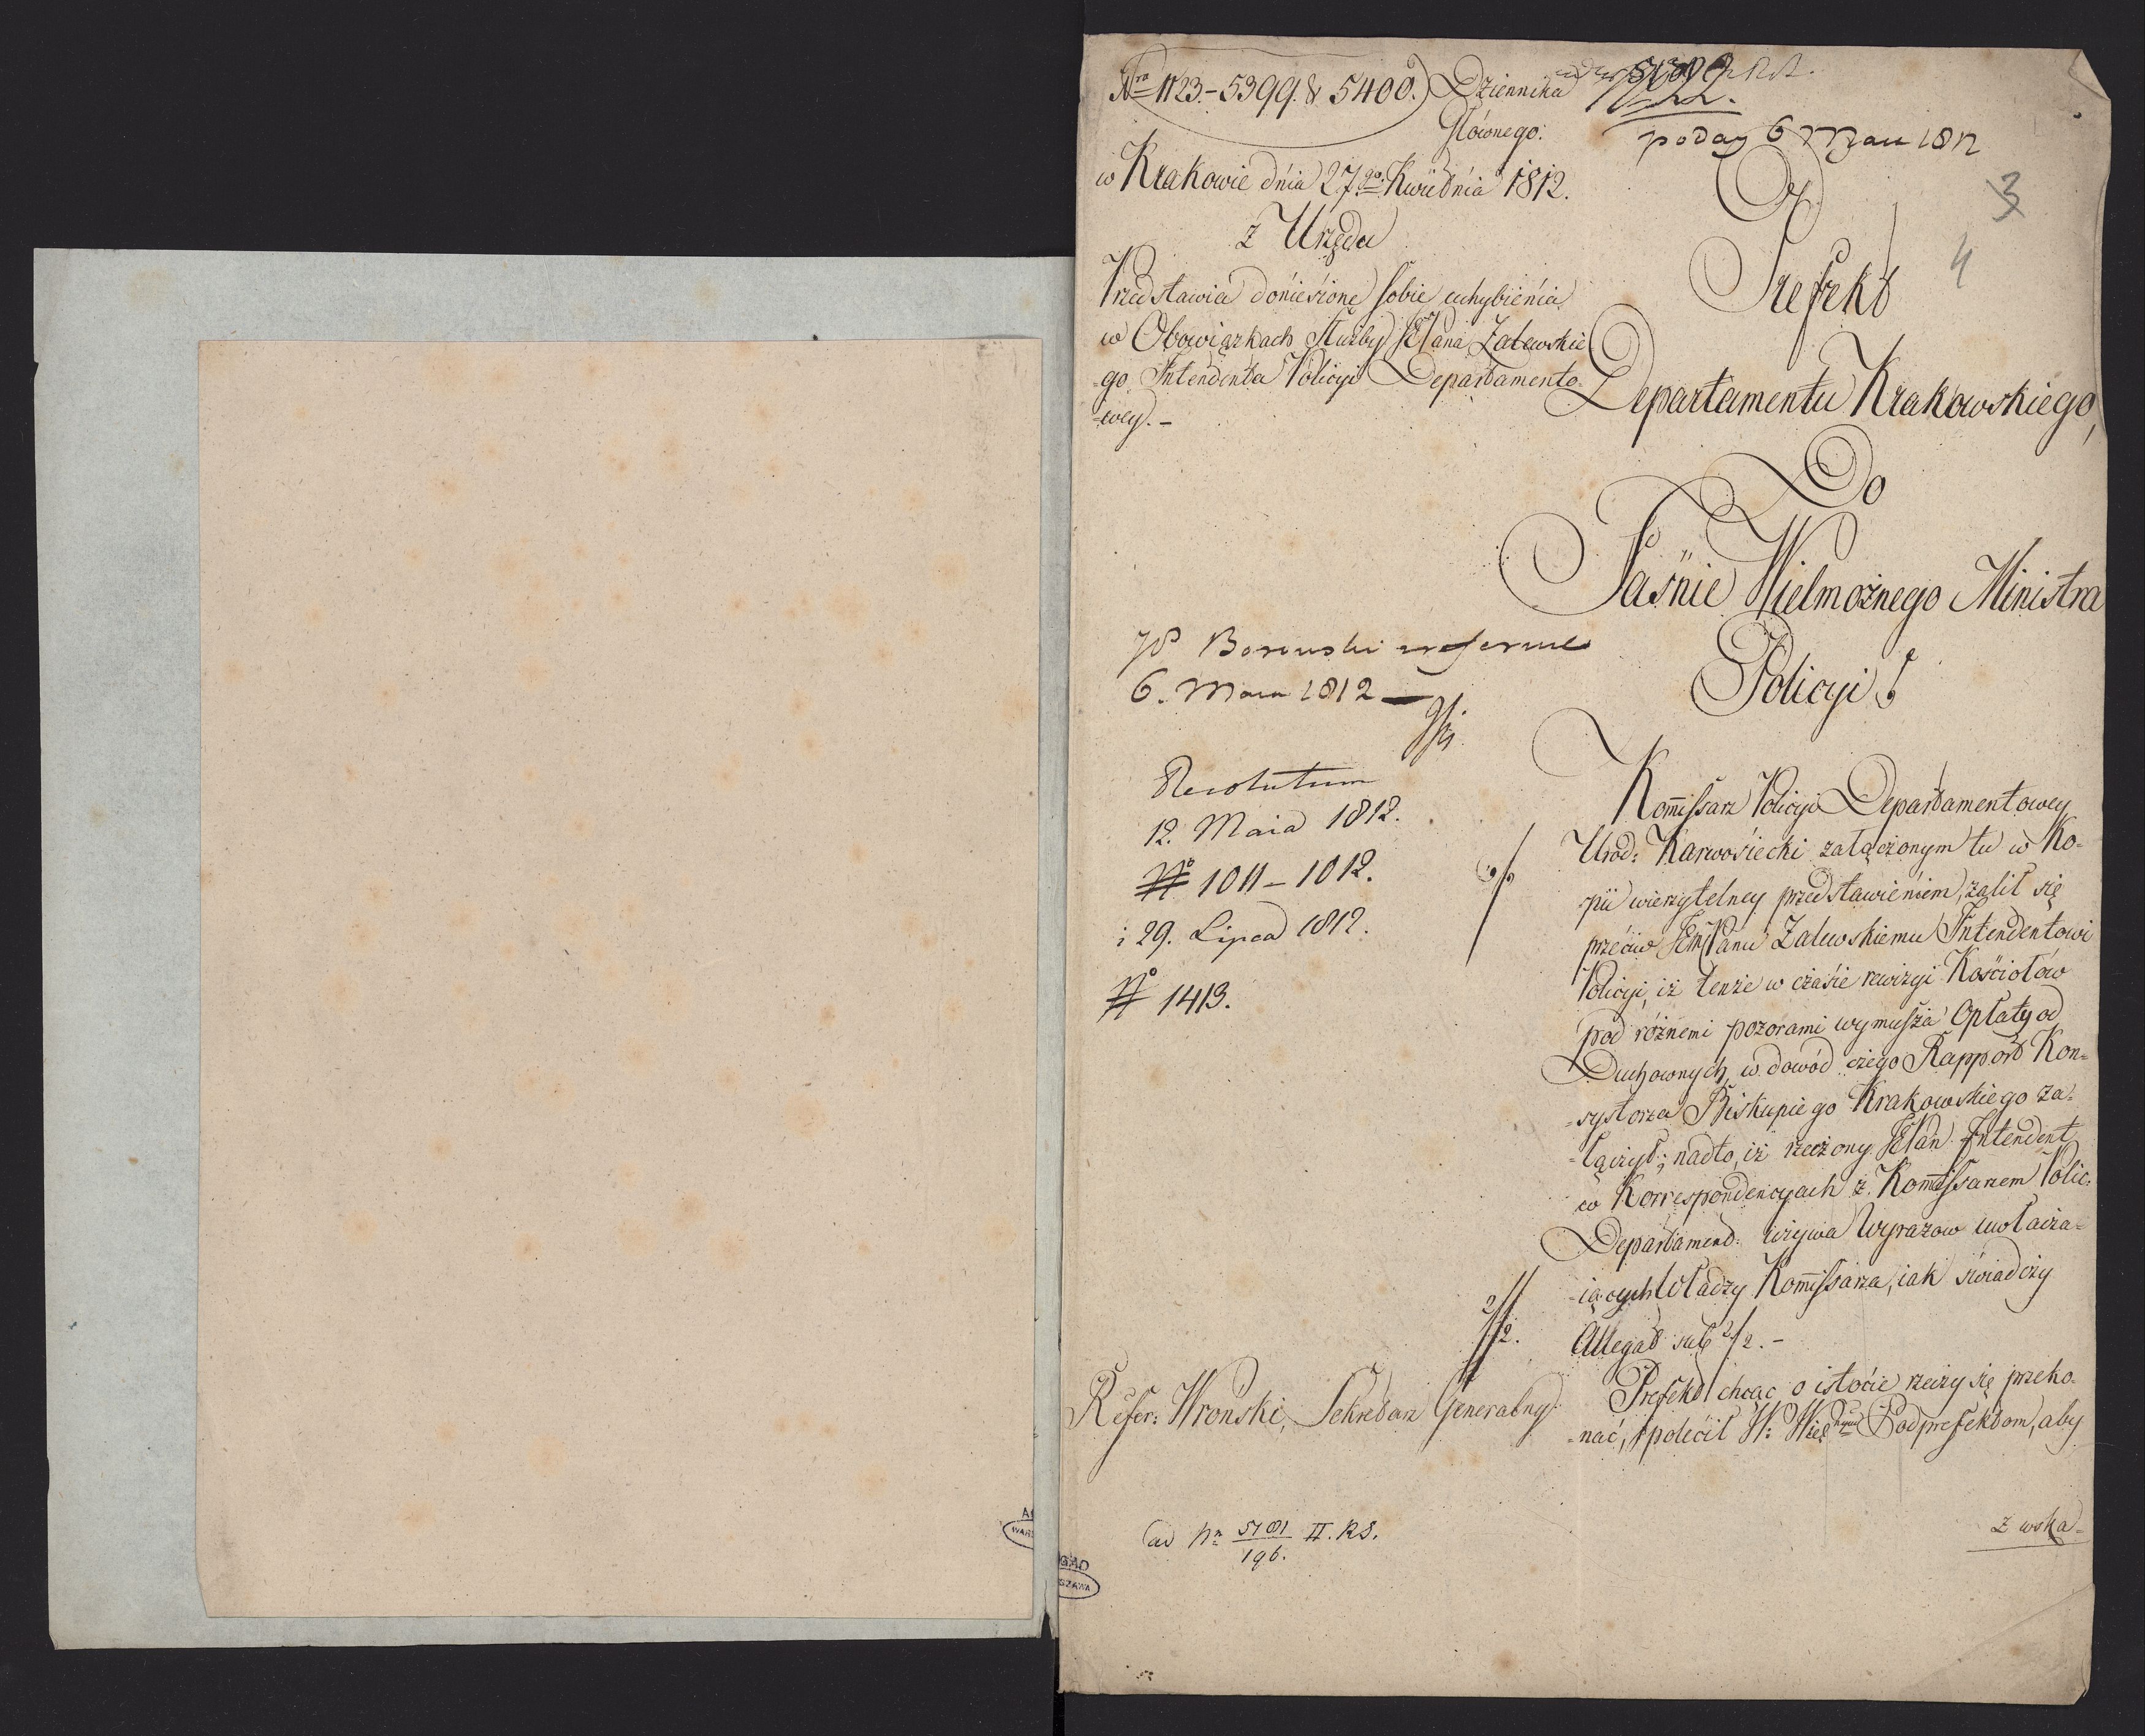 Nra 1123.-5399. & 5400. Dziennika
Głównego.
w Krakowie dnia 27go Kwietnia 1812.
z Urzędu
Przedstawia doniesione sobie uchybienia
w Obowiązkach Służby JPana Zalewskie
=go Intendenta Policyi Departamento=
=wey. -
poday 6 Maii 1812
3
4
Prefekt
Departamentu Krakowskiego,
Do
Jaśnie Wielmożnego Ministra
Policyi
JP Borowski
6. Maia 1812 —
Resolutum
12. Maia 1812.
No 1011 - 1012.
i 29. Lipca 1812.
No 1413.
Kommissarz Policyi Departamentowey
Urod: Karwosiecki załączonym tu w Ko=
pii wierzytelney przedstawieniem, żalił się
przeciw JmPanu Zalewskiemu Intendentowi
Policyi, iż tenże w czasie rewizyi Kościołów
pod różnemi pozorami wymusza Opłaty od
Duchownych, w dowód czego Rapport Kon=
=systorza Biskupiego Krakowskiego za=
=łączył; nadto, iż rzeczony JPan Intendent
w Korrespondencyach z Kommissarzem Polic:
Departament: używa Wyrazow uwłacza=
=iących Władzy Kommissarza, iak świadczy
2//2.
Allegat sub 2/2. -
Prefekt chcąc o istocie rzeczy się przeko=
=nać, polecił W: Podprefektom, aby
Refer: Wroński, Sekretarz Generalny.
z wska=
ad Nr 5781/196. II. RS.
AGAD
WARSZAWA